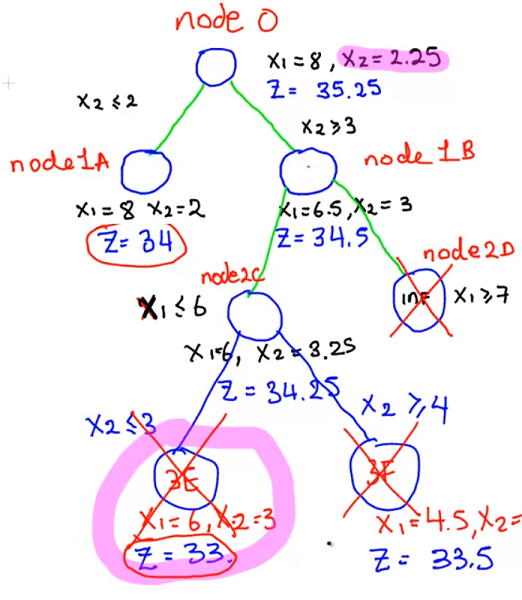 node 0
x₁ = 8, x₂ = 2.25
Z = 35.25
x₂ ≤ 2
x₂ ≥ 3
node 1A
node 1B
x₁ = 8 x₂ = 2
x₁ = 6.5, x₂ = 3
Z = 34
Z = 34.5
node 2D
node 2C
inf
x₁ ≥ 7
x₁ ≤ 6
x₁ = 6, x₂ = 3.25
Z = 34.25
x₂ ≤ 3
x₂ ≥ 4
3E
3F
x₁ = 6, x₂ = 3
x₁ = 4.5, x₂ =
Z = 33.
Z = 33.5